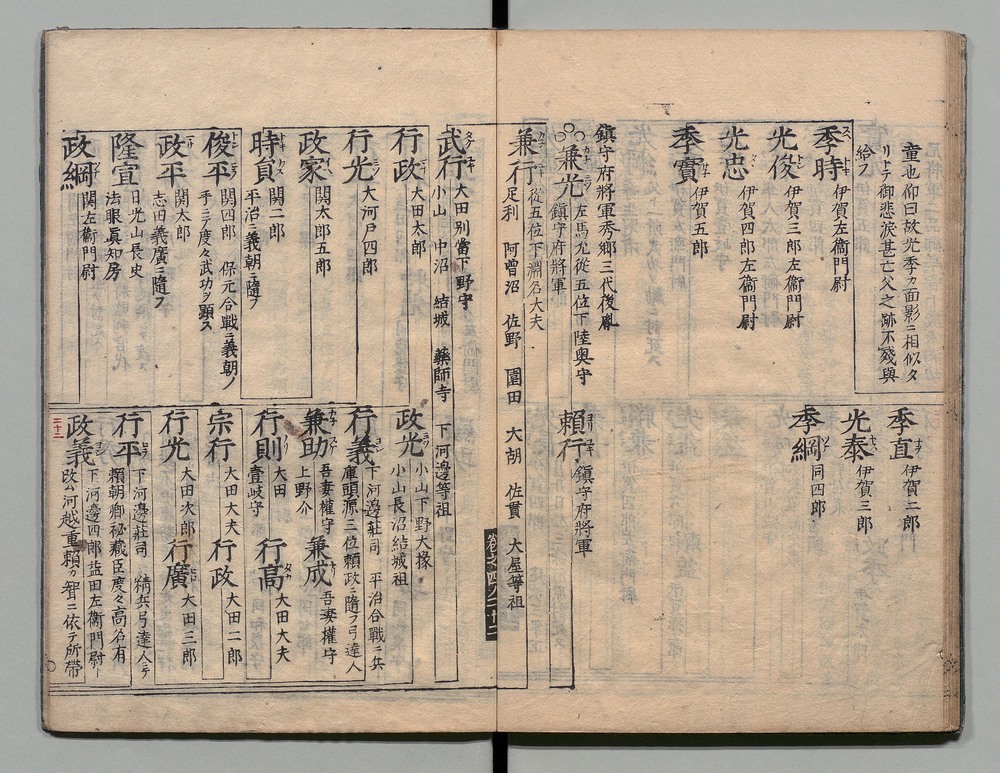 童也仰曰故光季カ面影ニ相似タ
リトテ御悲涙甚亡父之跡不殘與
給フ
季時 伊賀左衞門尉
光俊 伊賀三郎左衞門尉
光忠 伊賀四郎左衞門尉
季實 伊賀五郎
季直 伊賀二郎
光泰 伊賀三郎
季綱 同四郎
鎮守府將軍秀郷三代後胤
兼光 左馬允從五位下陸奥守
鎮守府將軍
頼行 鎮守府將軍
兼行 從五位下淵名大夫
足利 阿曾沼 佐野 園田 大胡 佐貫 大屋等祖
卷之四ノ二十二
武行 大田別當下野守
小山 中沼 結城 藥師寺 下河邊等祖
行政 大田太郎
行光 大河戸四郎
政家 関太郎五郎
時員 関二郎
平治ニ義朝ニ隨フ
俊平 関四郎 保元合戰ニ義朝ノ
手ニテ度々武功ヲ顕ス
政平 関太郎
志田義廣ニ隨フ
隆宣 日光山長史
法眼眞知房
政綱 関左衞門尉
政光 小山下野大掾
小山長沼結城祖
行義 下河邊莊司 平治合戰ニ兵
庫頭源三位頼政ニ隨フ弓達人
兼助 吾妻權守
上野介
兼成 吾妻權守
行則 大田
壹岐守
行高 大田大夫
宗行 大田大夫
行政 大田二郎
行光 大田次郎
行廣 大田三郎
行平 下河邊莊司 精兵弓達人テ
頼朝卿秘藏臣度々高名有
政義 下河邊四郎益田左衞門尉
改ム河越重頼カ智ニ依テ所帶
二十三